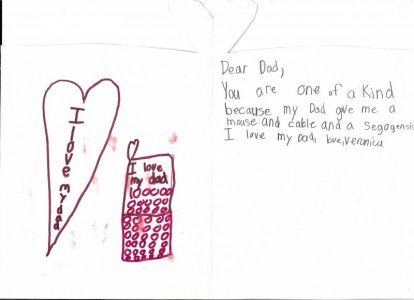 I love my dad
I love
my dad
Dear Dad,
You are one of a Kind
because my Dad give me a
mouse and cable and a
I love my Dad, love, Veronica